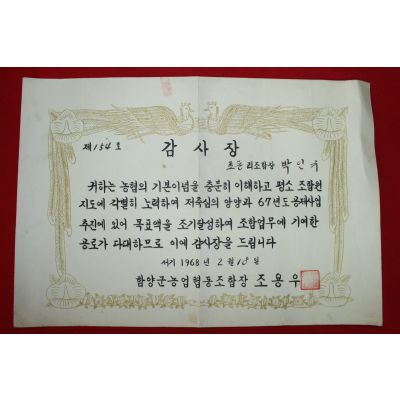 제 154 호
감사장
리조합장 박인
귀하는 농협의 기본이념을 충분히 이해하고 평소 조합원
지도에 각별히 노력하여 저축심의 앙양과 67년도 공제사업
추진에 있어 목표액을 조기달성하여 조합업무에 기여한
공로가 다대하므로 이에 감사장을 드립니다
서기 1968 년 2 월 15 일
함양군농업협동조합장 조용우